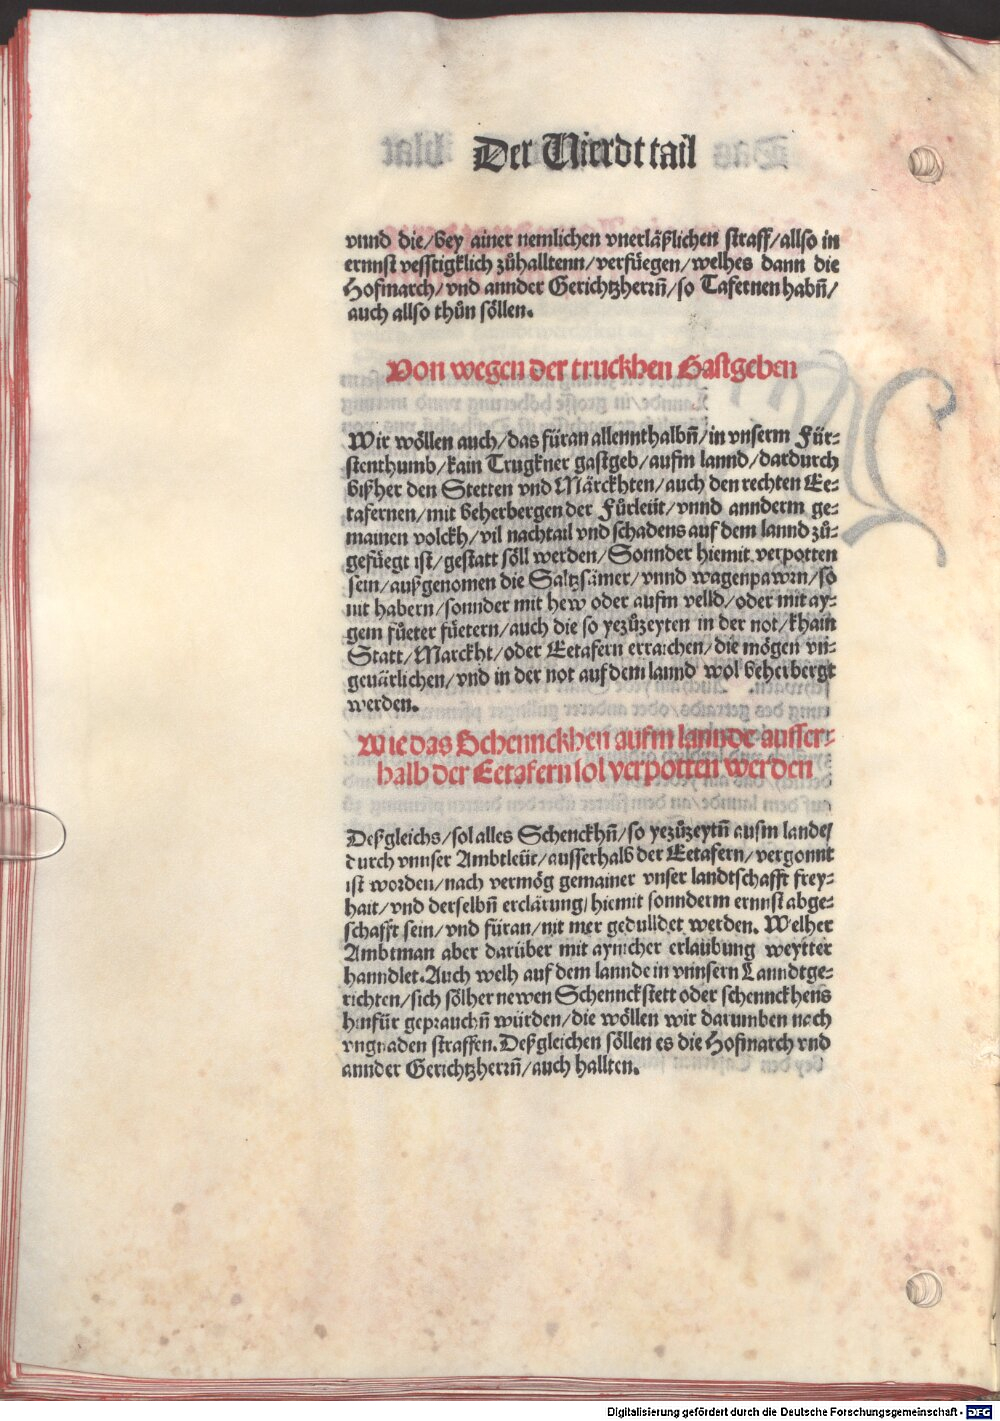 Der Vierdt tail
vnnd die/bey ainer nemlichen vnerläßlichen straff/allso in
ernnst vesstigklich zůhalltenn/verfüegen/welhes dann die
Hofmarch/vnd annder Gerichtzherrñ/so Tafernen habñ/
auch allso thůn söllen.
Von wegen der truckhen Gastgeben
Wir wöllen auch/das füran allennthalbñ/in vnserm Für⸗
stenthumb/kain Trugkner gastgeb/aufm lannd/dardurch
bißher den Stetten vnd Märckhten/auch den rechten Ee⸗
tafernen/mit beherbergen der Fůrleüt/vnnd annderm ge⸗
mainen volckh/vil nachtail vnd schadens auf dem lannd zů⸗
gefüegt ist/gestatt söll werden/Sonnder hiemit verpotten
sein/außgenomen die Saltzsämer/vnnd wagenpawrn/so
nit habern/sonnder mit hew oder aufm velld/oder mit ay⸗
gem fůeter füetern/auch die so yezůzeyten in der not/khain
Statt/Marckht/oder Eetafern erraichen/die mögen vn⸗
geuärlichen/vnd in der not auf dem lannd wol beherbergt
werden.
Wie das Schennckhen aufm lannde ausser⸗
halb der Eetafern sol verpotten werden
Deßgleichs/sol alles Schenckhñ/so yezůzeytñ aufm lande/
durch vnnser Ambtleüt/ausserhalb der Eetafern/vergonnt
ist worden/nach vermög gemainer vnser landtschafft frey⸗
hait/vnd derselbñ erclärung/hiemit sonnderm ernnst abge⸗
schafft sein/vnd füran/nit mer gedulldet werden. Welher
Ambtman aber darüber mit aynicher erlaubung weytter
hanndlet. Auch welh auf dem lannde in vnnsern Lanndtge⸗
richten/sich sölher newen Schennckstett oder schennckhens
hinfür geprauchñ würden/die wöllen wir darumben nach
vngnaden straffen. Deßgleichen söllen es die Hofmarch vnd
annder Gerichtzherrñ/auch hallten.
Digitalisierung gefördert durch die Deutsche Forschungsgemeinschaft - DFG